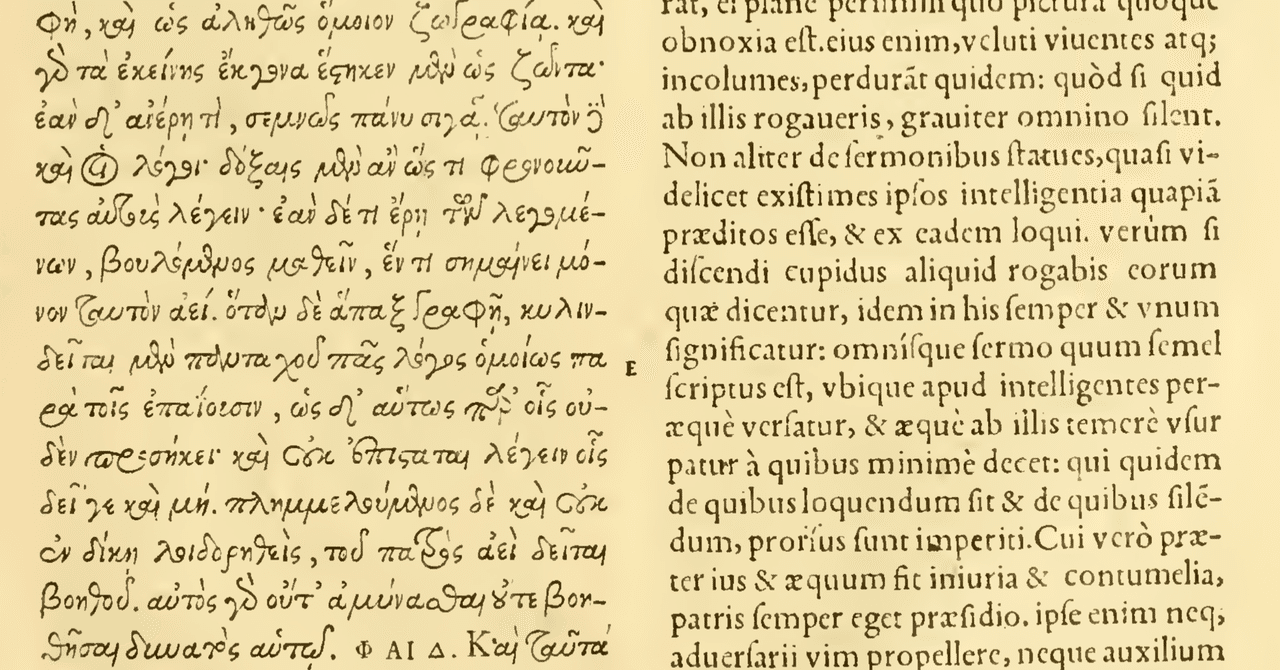 φὴ, καὶ ὡς ἀληθῶς ὅμοιον ζωγραφίᾳ. καὶ
γὸ τὰ ἐκείνης ἔκγονα ἕστηκεν μὲν ὡς ζῶντα·
ἐὰν δ’ ἀνέρῃ τὶ, σεμνῶς πάνυ σιγᾷ. ταυτὸν δὲ
καὶ οἱ λόγοι· δόξαις μὲν ἂν ὥς τι φρονοιοῦ-
τας αὐτοὺς λέγειν· ἐὰν δέ τι ἔρῃ τῶν λεγομέ-
νων, βουλόμενος μαθεῖν, ἕν τι σημαίνει μό-
νον ταυτὸν ἀεί. ὅταν δὲ ἅπαξ γραφῇ, κυλιν-
δεῖται μὲν πανταχοῦ πᾶς λόγος ὁμοίως πα
ρὰ τοῖς ἐπαΐουσιν, ὡς δ’ αὕτως παρ’ οἷς οὐ-
δὲν προσήκει· καὶ οὐκ ἐπίσταται λέγειν οἷς
δεῖ γε καὶ μή. πλημμελούμενος δὲ καὶ οὐκ
ἐν δίκῃ λοιδορηθεὶς, τοῦ πατρὸς ἀεὶ δεῖται
βοηθοῦ. αὐτὸς γὸ οὔτ’ ἀμύνασθαι οὔτε βοη-
θῆσαι δυνατὸς αὑτῷ. ΦΑΙΔ. Καὶ ταῦτά
E
rat, ei planè persimili quo pictura quoque
obnoxia est. eius enim, veluti viuentes atq;
incolumes, perdurãt quidem: quòd si quid
ab illis rogaueris, grauiter omnino silent.
Non aliter de sermonibus statues, quasi vi-
delicet existimes ipsos intelligentia quapiã
præditos esse, & ex eadem loqui. verùm si
discendi cupidus aliquid rogabis eorum
quæ dicentur, idem in his semper & vnum
significatur: omnísque sermo quum semel
scriptus est, vbique apud intelligentes per-
æquè versatur, & æquè ab illis temerè vsur
patur à quibus minimè decet: qui quidem
de quibus loquendum sit & de quibus silẽ-
dum, prorsus sunt imperiti. Cui verò præ-
ter ius & æquum fit iniuria & contumelia,
patris semper eget præsidio. ipse enim neq;
aduersarii vim propellere, neque auxilium